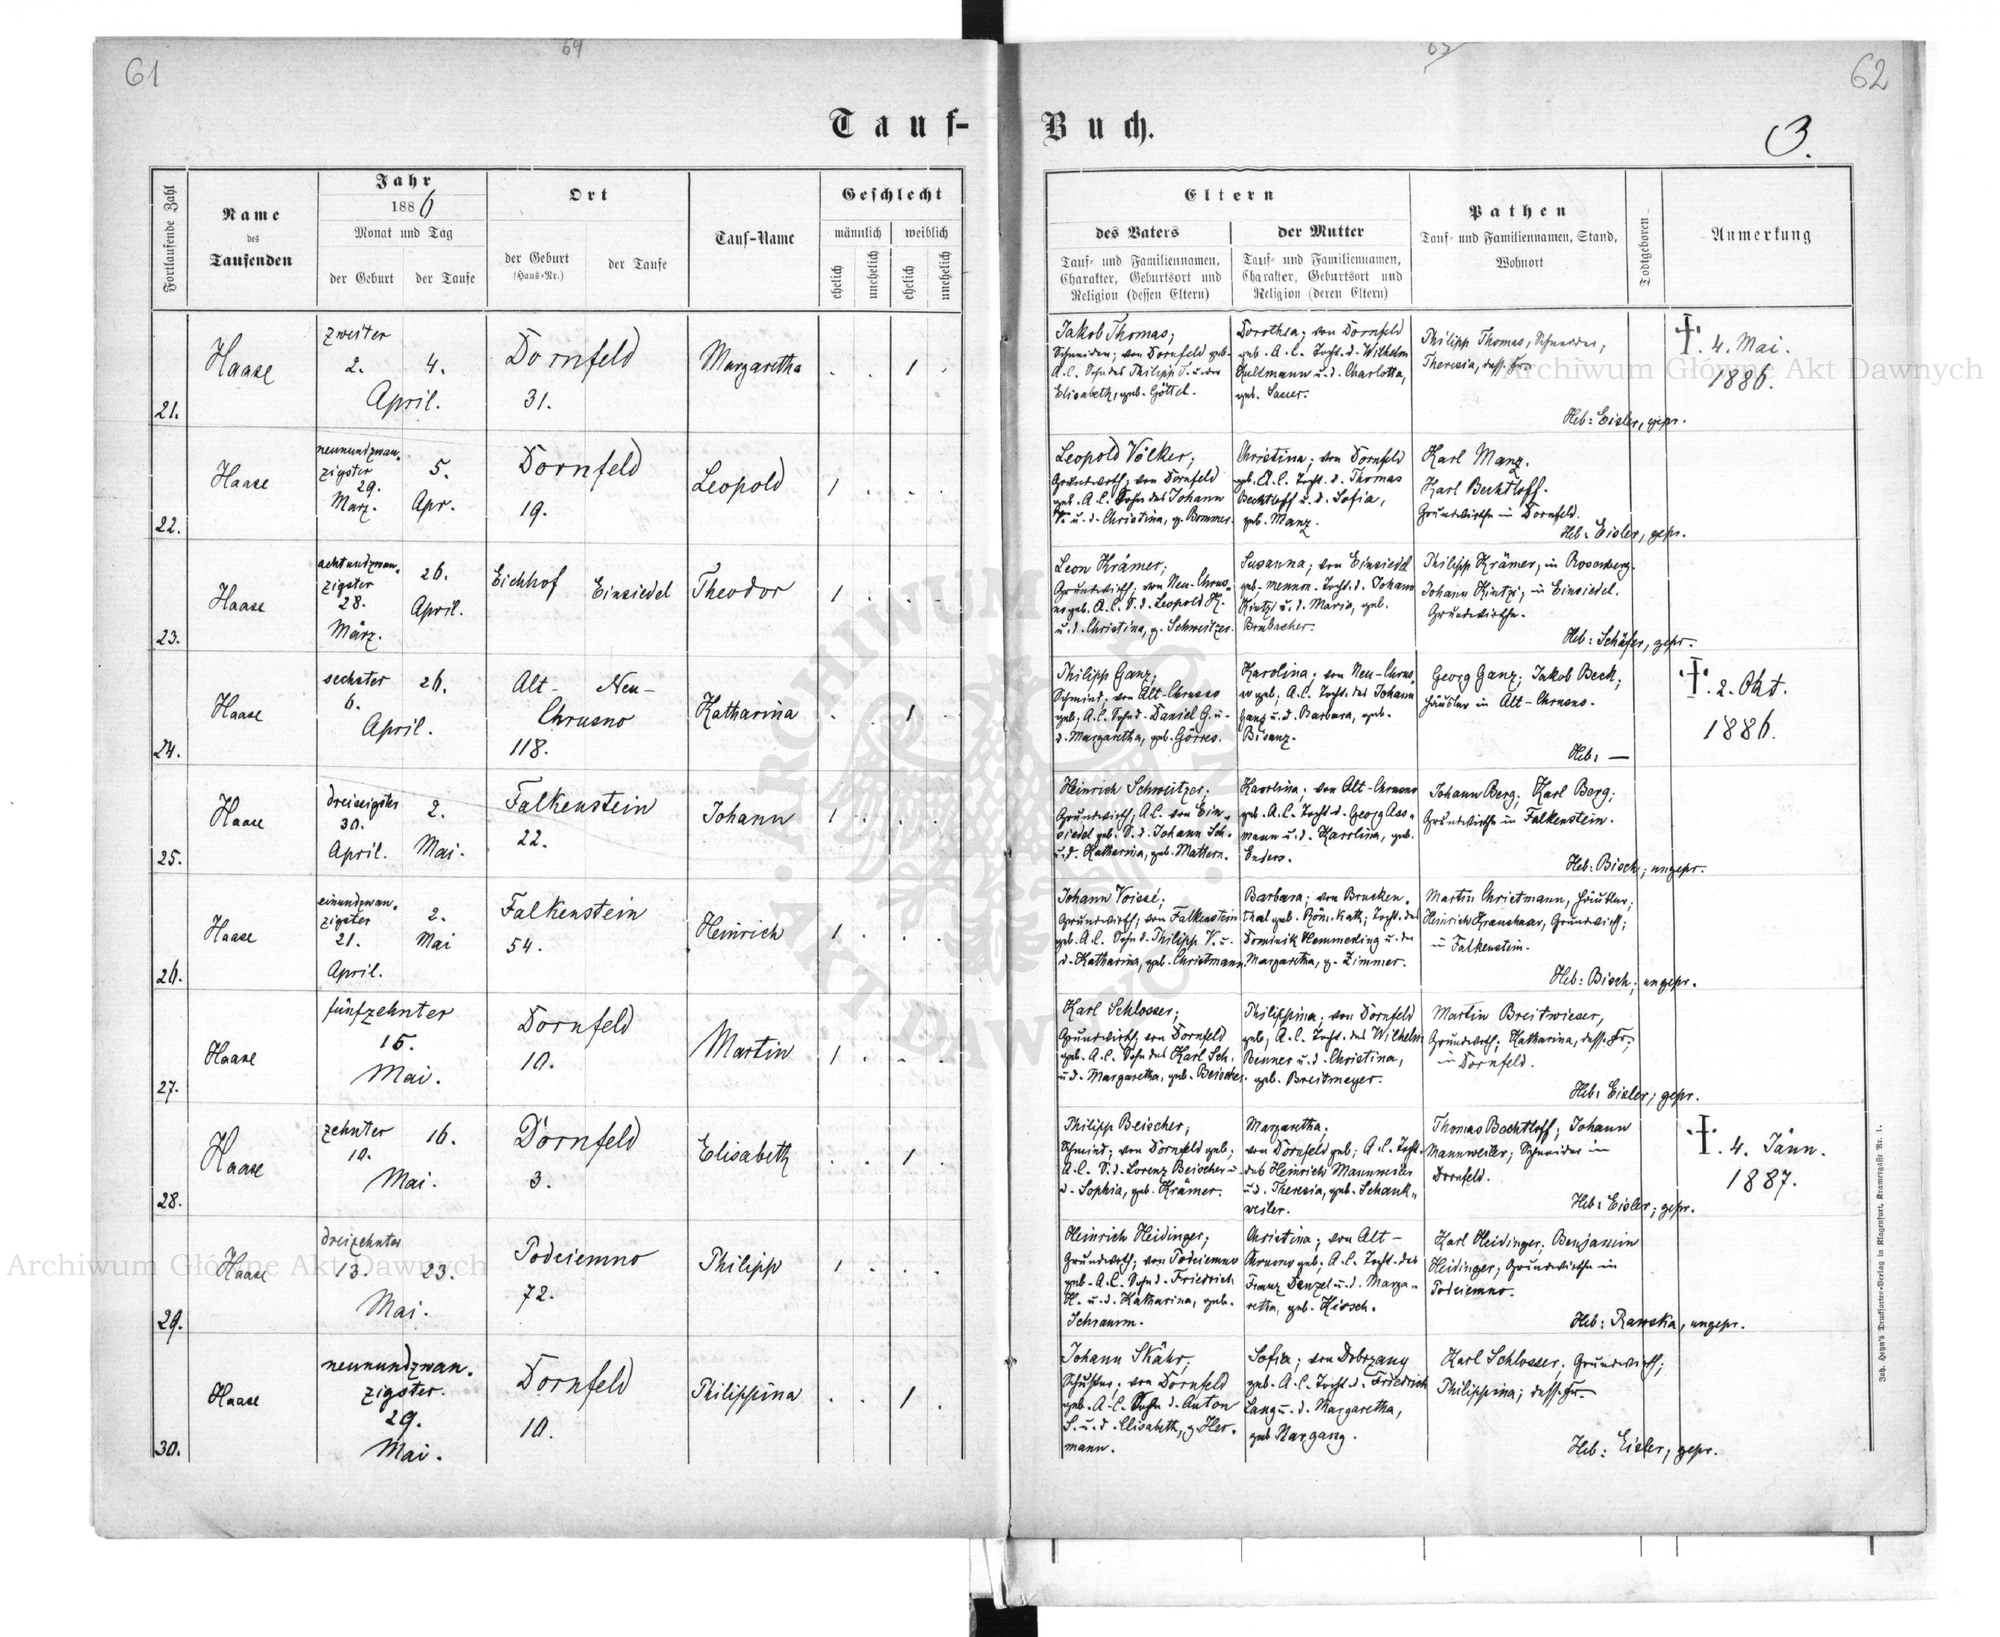 61
64
62
Tauf-
Buch.
3.
Fortlaufende Zahl
Name
des
Taufenden
Jahr
1886
Monat und Tag
der Geburt
der Taufe
Ort
der Geburt
(Haus-Nr.)
der Taufe
Tauf-Name
Geschlecht
männlich
weiblich
ehelich
unehelich
ehelich
unehelich
Eltern
des Vaters
Tauf- und Familiennamen,
Charakter, Geburtsort und
Religion (dessen Eltern)
der Mutter
Tauf- und Familiennamen,
Charakter, Geburtsort und
Religion (deren Eltern)
Pathen
Tauf- und Familiennamen, Stand,
Wohnort
Todtgeboren
Anmerkung
21.
Haase
zweiter
2.
4.
April.
Dornfeld
31.
Margaretha
1
Jakob Thomas;
Schneider; von Dornfeld geb.
A.C. Sohn des Philipp T. u. der
Elisabeth, geb. Göttel.
Dorothea; von Dornfeld
geb. A.C. Tocht. d. Wilhelm
Kullmann u. d. Charlotta,
geb. Sauer.
Philipp Thomas, Schneider;
Theresia, dess. Fr.
Heb: Eisler, gepr.
† 4. Mai.
1886.
22.
Haase
neunundzwan-
zigster
29.
März.
5.
Apr.
Dornfeld
19.
Leopold
1
Leopold Völker;
Grundwirth; von Dornfeld
geb. A.C. Sohn des Johann
V. u. d. Christina, g. Brommer.
Christina; von Dornfeld
geb. A.C. Tocht. d. Thomas
Bechtloff u. d. Sofia,
geb. Manz.
Karl Manz.
Karl Bechtloff.
Grundwirthe in Dornfeld.
Heb: Eisler, gepr.
23.
Haase
achtundzwan-
zigster
28.
März.
26.
April.
Eichhof
Einsiedel
Theodor
1
Leon Krämer;
Grundwirth; von Neu-Chrus-
no geb. A.C. S. d. Leopold K.
u. d. Christina, g. Schweitzer.
Susanna; von Einsiedel
geb. mennon. Tocht. d. Johann
Kintzi u. d. Maria, geb.
Brubacher.
Philipp Krämer; in Rosenberg.
Johann Kintzi; in Einsiedel.
Grundwirthe.
Heb: Schäfer, gepr.
24.
Haase
sechster
6.
April.
26.
Alt- Neu-
Chrusno
118.
Katharina
1
Philipp Ganz;
Schmied; von Alt-Chrusno
geb; A.C. Sohn d. Daniel G. u.
d. Margaretha, geb. Görres.
Karolina; von Neu-Chrus-
no geb; A.C. Tocht. des Johann
Ganz u. d. Barbara, geb.
Bisanz.
Georg Ganz; Jakob Beck;
Häusler in Alt-Chrusno.
Heb: —
† 2. Okt.
1886.
25.
Haase
dreissigster
30.
April.
2.
Mai.
Falkenstein
22.
Johann
1
Heinrich Schweitzer;
Grundwirth; A.C. von Ein-
siedel geb. S. d. Johann Sch.
u. d. Katharina, geb. Mattern.
Karolina; von Alt-Chrusno
geb. A.C. Tocht. d. Georg Ass-
mann u. d. Karolina, geb.
Enders.
Johann Berg; Karl Berg;
Grundwirthe in Falkenstein.
Heb: Bisch; ungepr.
26.
Haase
einundzwan-
zigster
21.
April.
2.
Mai
Falkenstein
54.
Heinrich
1
Johann Voissé;
Grundwirth; von Falkenstein
geb. A.C. Sohn d. Philipp V. u.
d. Katharina, geb. Christmann.
Barbara; von Brucken-
thal geb. Röm. Kath; Tocht. des
Dominik Hemmerling u. der
Margaretha, g. Zimmer.
Martin Christmann, Häusler;
Heinrich Kraushaar, Grundwirth;
in Falkenstein.
Heb: Bisch; ungepr.
27.
Haase
fünfzehnter
15.
Mai.
Dornfeld
10.
Martin
1
Karl Schlosser;
Grundwirth; von Dornfeld
geb. A.C. Sohn des Karl Sch.
u. d. Margaretha, geb. Beischer.
Philippina; von Dornfeld
geb; A.C. Tocht. des Wilhelm
Renner u. d. Christina,
geb. Breitmeyer.
Martin Breitwieser,
Grundwirth; Katharina, dess. Fr;
in Dornfeld.
Heb: Eisler; gepr.
28.
Haase
zehnter
10.
16.
Mai.
Dornfeld
3.
Elisabeth
1
Philipp Beischer;
Schmied; von Dornfeld geb;
A.C. S. d. Lorenz Beischer u.
d. Sophia, geb. Krämer.
Margaretha;
von Dornfeld geb; A.C. Tocht.
des Heinrich Mannweiler
u. d. Theresia, geb. Schank-
weiler.
Thomas Bechtloff; Johann
Mannweiler; Schneider in
Dornfeld.
Heb: Eisler; gepr.
† 4. Jänn.
1887.
29.
Haase
dreizehnter
13.
23.
Mai.
Podciemno
72.
Philipp
1
Heinrich Heidinger;
Grundwirth; von Podciemno
geb. A.C. Sohn d. Friedrich
H. u. d. Katharina, geb.
Schramm.
Christina; von Alt-
Chrusno geb; A.C. Tocht. des
Franz Denzel u. d. Marga-
retha, geb. Hirsch.
Karl Heidinger; Benjamin
Heidinger; Grundwirthe in
Podciemno.
Heb: Rawska, ungepr.
30.
Haase
neunundzwan-
zigster.
29.
Mai.
Dornfeld
10.
Philippina
1
Johann Skähr;
Schuster; von Dornfeld
geb. A.C. Sohn d. Anton
S. u. d. Elisabeth, g. Her-
mann.
Sofia; von Dobrzany
geb. A.C. Tocht. d. Friedrich
Lang u. d. Margaretha,
geb Nargang.
Karl Schlosser; Grundwirth;
Philippina; dess. Fr.
Heb: Eisler; gepr.
Joh. Heyn's Drucksorten-Verlag in Klagenfurt, Kramergasse Nr. 1.
Archiwum Główne Akt Dawnych
Archiwum Główne Akt Dawnych
ARCHIWUM GŁÓWNE AKT DAWNYCH